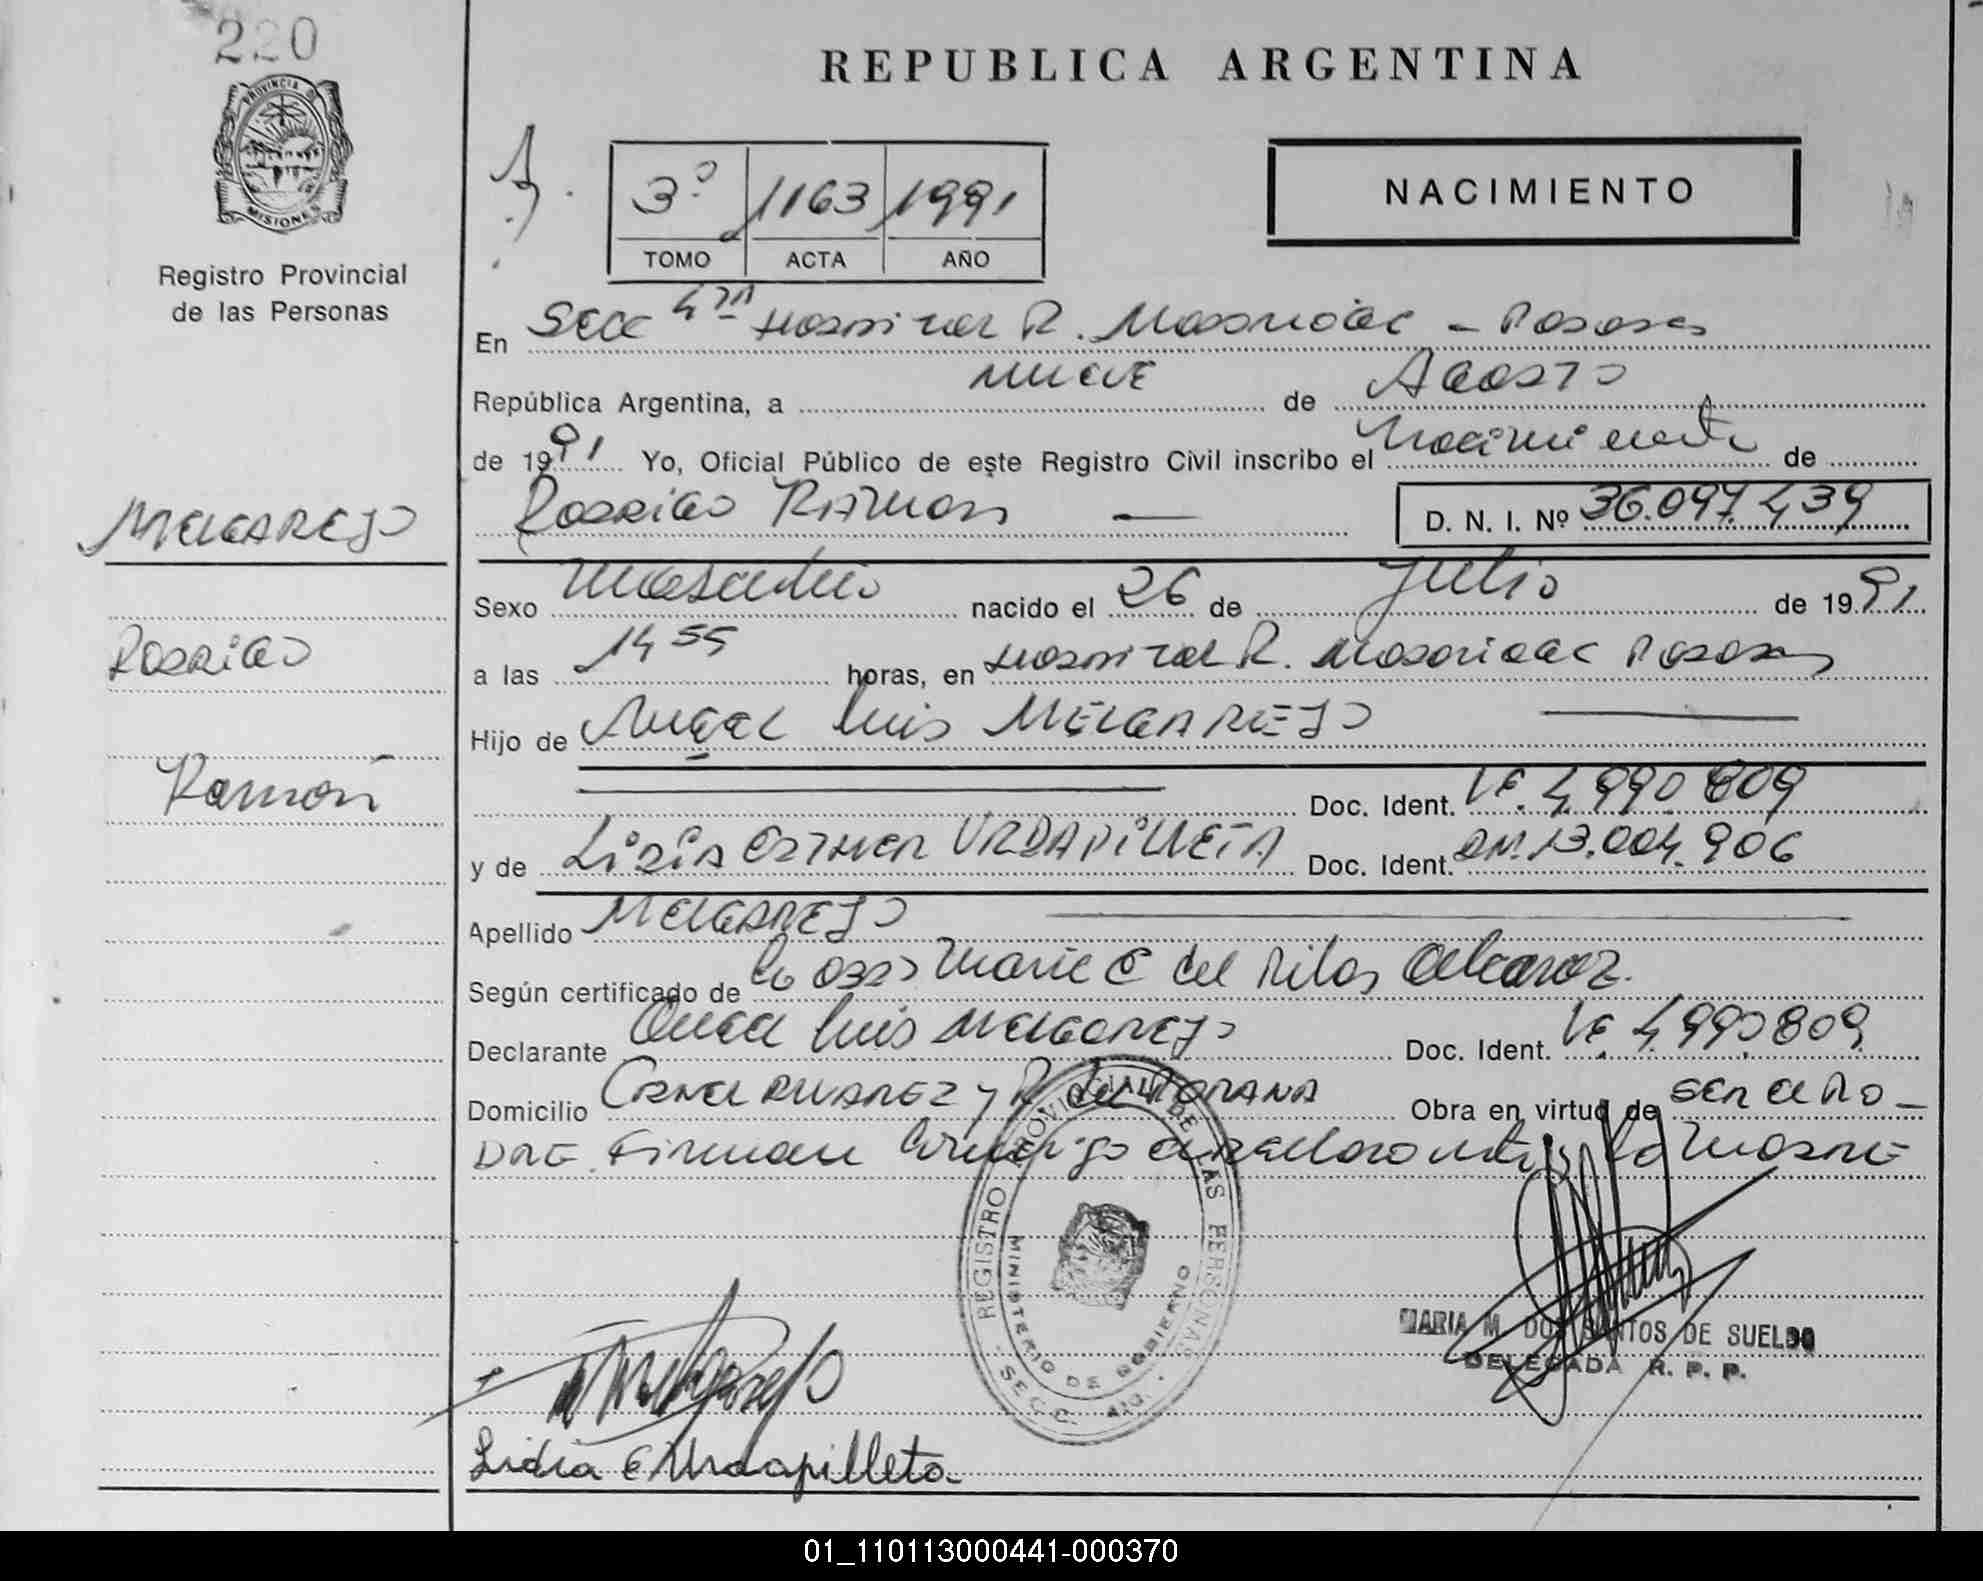 220
PROVINCIA D
MISIONES
Registro Provincial
de las Personas
MELGAREJO
Rodrigo
Ramón
REPUBLICA ARGENTINA
3º 1163 1991
TOMO ACTA AÑO
NACIMIENTO
En Secc 4ta Hospital R. Madariaga - Posadas
República Argentina, a nueve de Agosto
de 1991 Yo, Oficial Público de este Registro Civil inscribo el Nacimiento de
Rodrigo Ramon D. N. I. Nº 36.097.439
Sexo Masculino nacido el 26 de Julio de 1991
a las 14 55 horas, en Hospital R. Madariaga Posadas
Hijo de Angel Luis MELGAREJO
Doc. Ident. LE. 4.990.809
y de Lidia Esther URDAPILLETA Doc. Ident. DNI. 13.004.906
Apellido MELGAREJO
Según certificado de Maria C del Milos Alcaraz.
Declarante Angel Luis Melgarejo Doc. Ident. LE. 4.990.809
Domicilio y R. Obra en virtud de ser el Pa-
dre. Firman Conmigo el declarante y la Madre
REGISTRO PROVINCIAL DE LAS PERSONAS
MINISTERIO DE GOBIERNO
SECC. 4ta.
MARIA M. DOS SANTOS DE SUELDO
DELEGADA R. P. P.
Melgarejo
Lidia E Urdapilleta
01_110113000441-000370